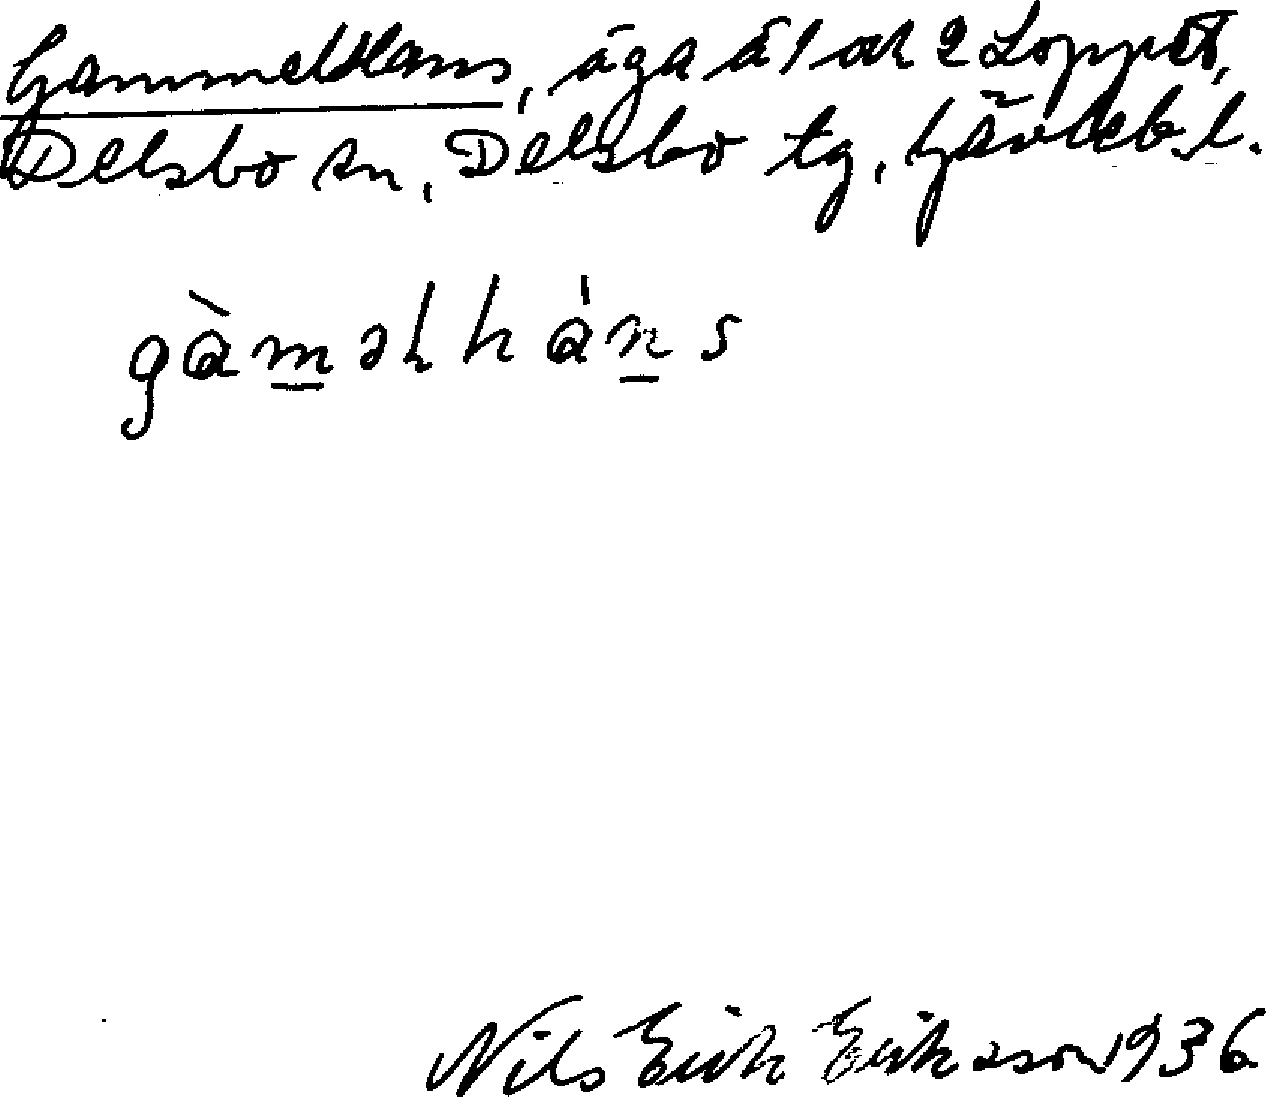 GammelHans, äga å 1 ar 2 Loppet,
Delsbo sn, Delsbo tg, Gävleb. l.
gàməlháns
Nils Erik Eriksson 1936